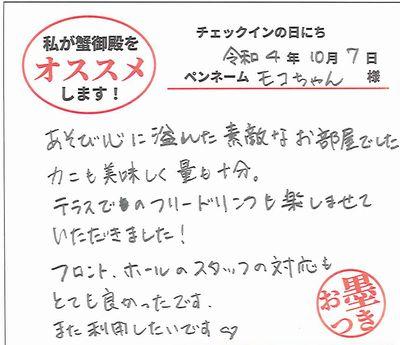 私が蟹御殿を
オススメ
します！
チェックインの日にち
令和4年10月7日
ペンネーム モコちゃん 様
あそび心に溢れた素敵なお部屋でした
カニも美味しく量も十分。
テラスでのフリードリンクも楽しませて
いただきました！
フロント、ホールのスタッフの対応も
とても良かったです。
また利用したいです♡
お墨
つき